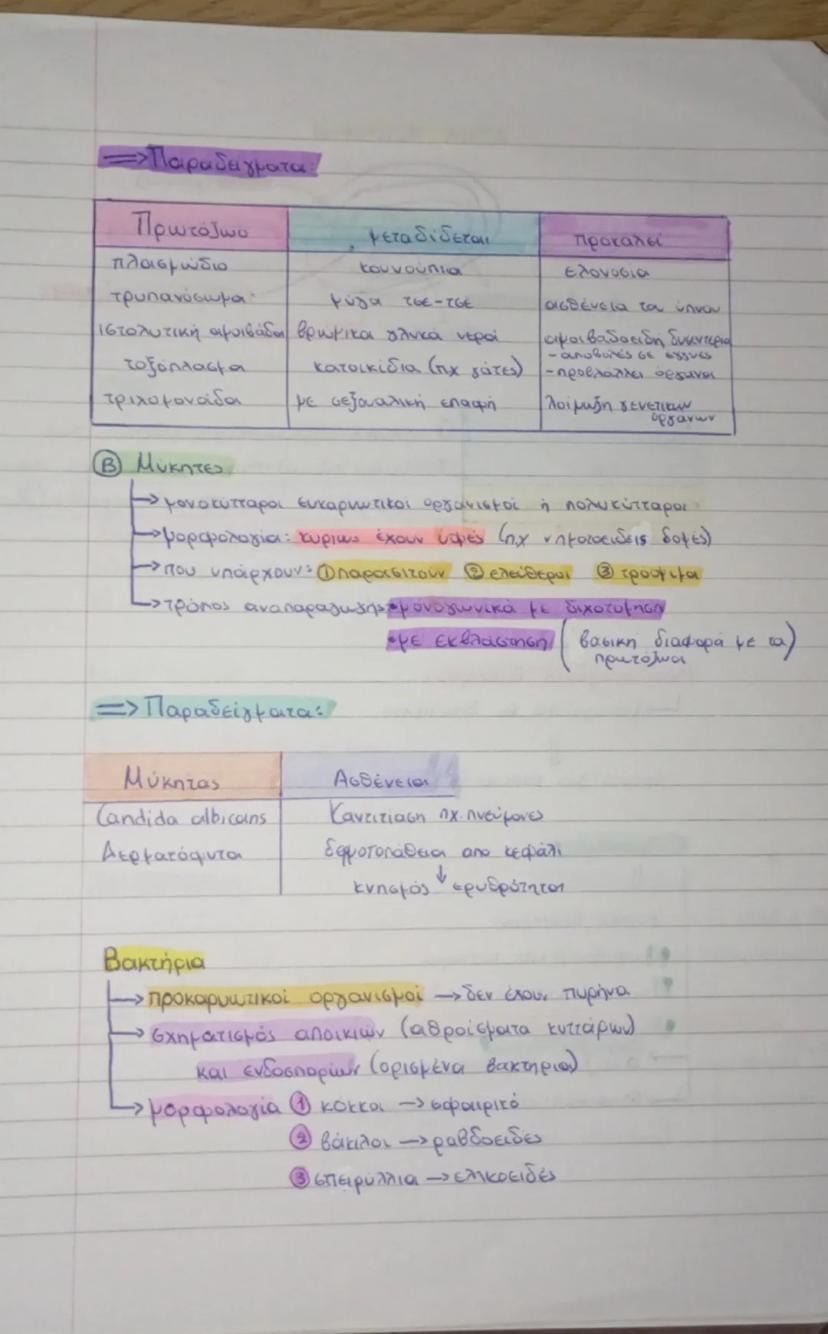 ⇒Παραδείγματα:
Πρωτόζωο μεταδίδεται προκαλεί
πλασμώδιο κουνούπια ελονοσία
τρυπανόσωμα: μύγα τσε-τσε ασθένεια του ύπνου
ιστολυτική αμοιβάδα βρώμικα γλυκά νερά αμοιβαδοειδή δυσεντερία
τοξόπλασμα κατοικίδια (πχ γάτες) -αποβολές σε εγγύες
-προβλάλλει όργανα
τριχομονάδα με σεξουαλική επαφή λοίμωξη γενετικών
οργάνων
Β Μύκητες
→μονοκύτταροι ευκαρυωτικοί οργανισμοί ή πολυκύτταροι
→μορφολογία: κυρίως έχουν υφές (πχ νηματοειδείς δομές)
→που υπάρχουν: ①παρασιτούν ②ελεύθεροι ③τρόφιμα
→τρόπος αναπαραγωγής •μονογωνικά με διχοτόμηση
•με εκβλάστηση (βασική διαφορά με τα)
πρωτόζωα
⇒Παραδείγματα:
Μύκητας Ασθένεια
Candida albicans Καντιτίαση πχ. πνεύμονες
Δερματόφυτα δερματοπάθεια απο κεφάλι
↓
κνησμός ερυθρότητα
Βακτήρια
→προκαρυωτικοί οργανισμοί →δεν έχουν πυρήνα
→σχηματισμός αποικιών (αθροίσματα κυττάρων)
και ενδοσπορίων (ορισμένα βακτήρια)
→μορφολογία ① κόκκοι →σφαιρικό
② βάκιλοι →ραβδοειδές
③ σπειρύλλια →ελικοειδές